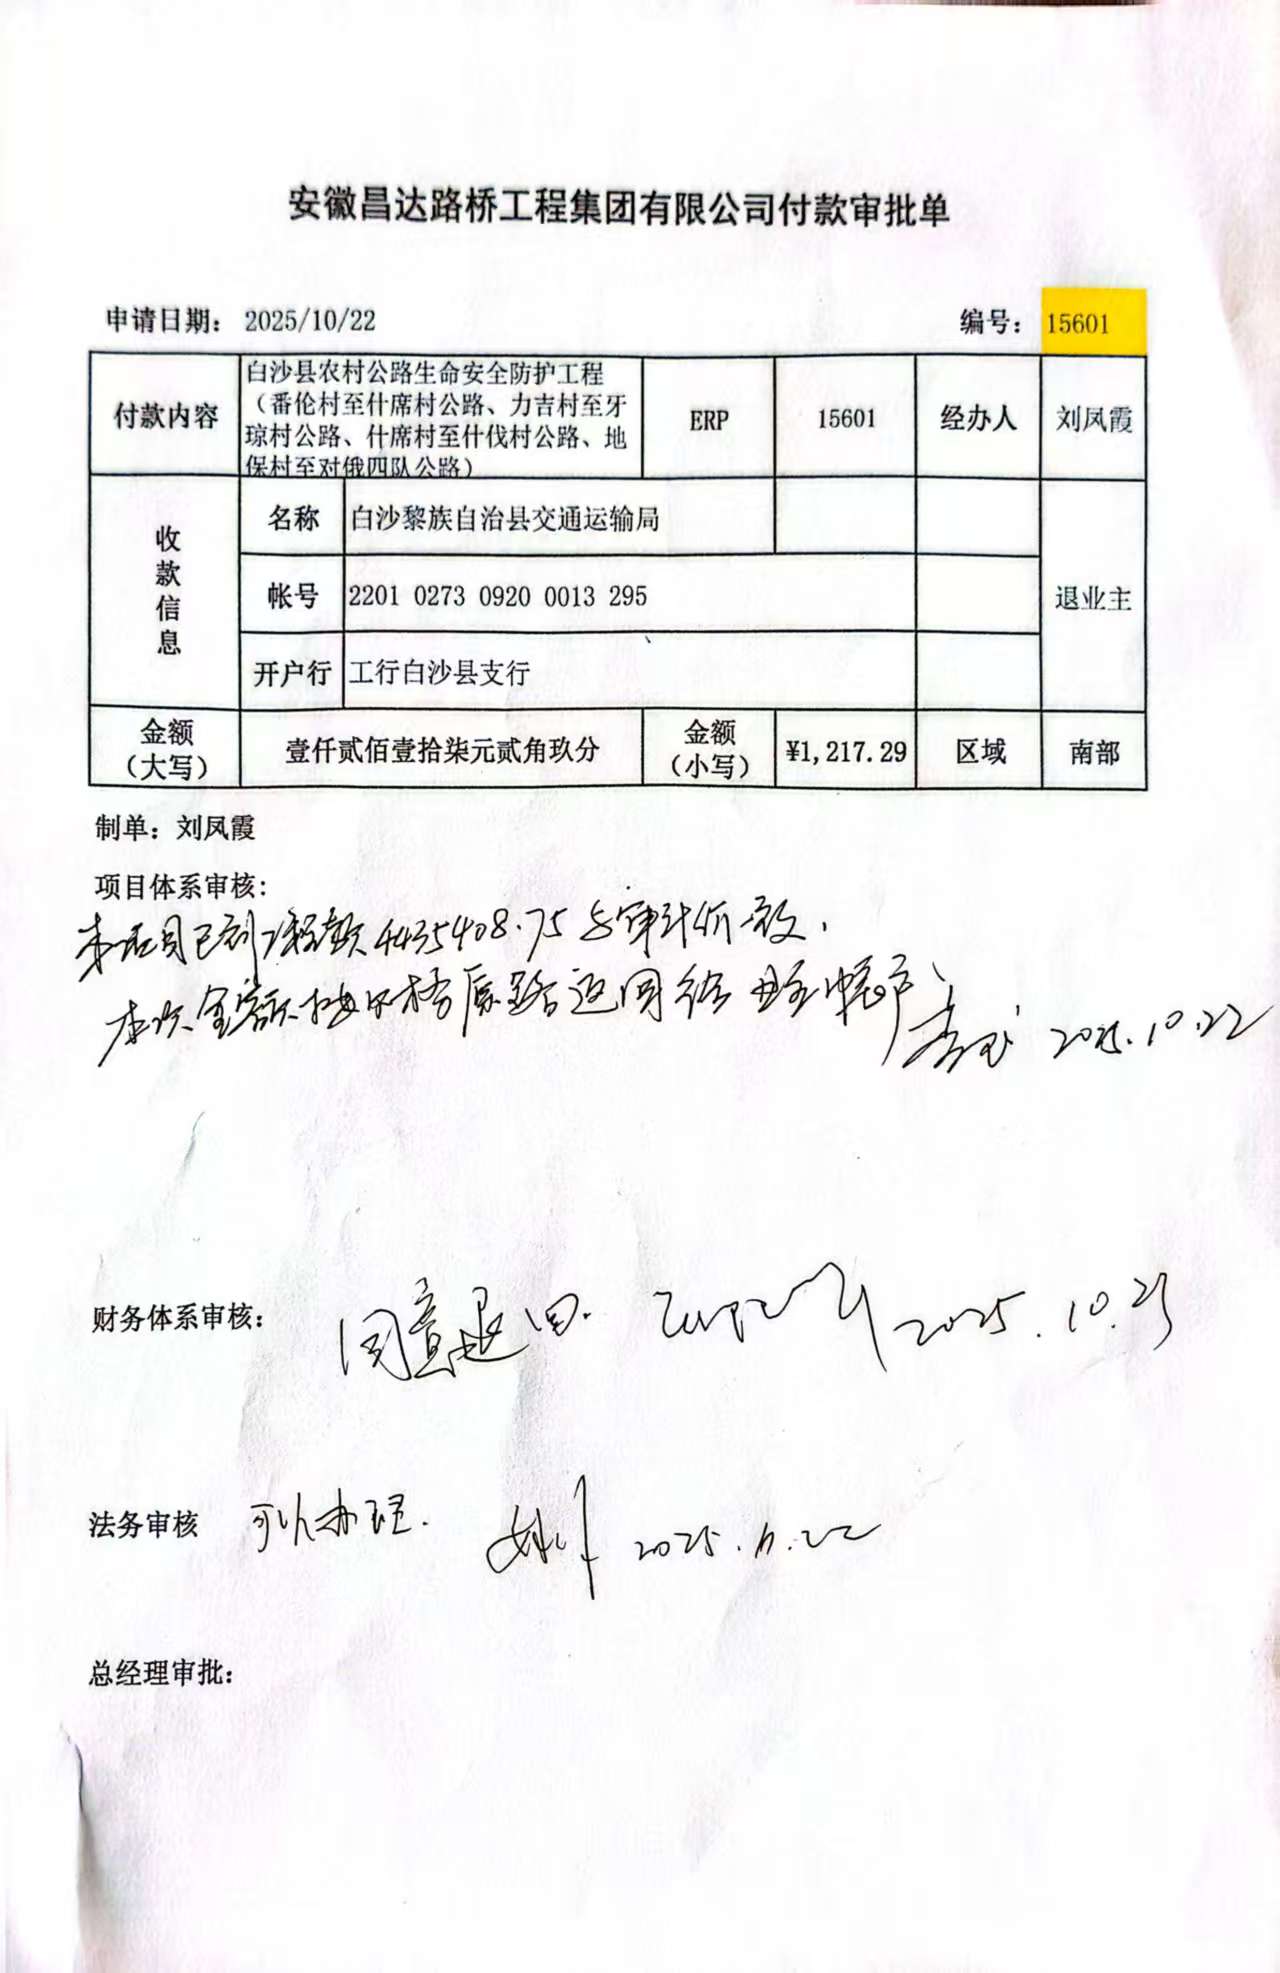 安徽昌达路桥工程集团有限公司付款审批单
申请日期： 2025/10/22 编号： 15601
付款内容
白沙县农村公路生命安全防护工程
（番伦村至什席村公路、力吉村至牙
琼村公路、什席村至什伐村公路、地
保村至对俄四队公路）
ERP 15601 经办人 刘凤霞
收款信息
名称 白沙黎族自治县交通运输局
帐号 2201 0273 0920 0013 295
退业主
开户行 工行白沙县支行
金额
（大写）
壹仟贰佰壹拾柒元贰角玖分
金额
（小写）
¥1,217.29 区域 南部
制单：刘凤霞
项目体系审核：
本项目已到工程款4435408.75与审计价一致，
本次金额 原路返回给 账户、 2025.10.22
财务体系审核： 同意退回. 2025.10.23
法务审核 可以办理. 2025.10.22
总经理审批：